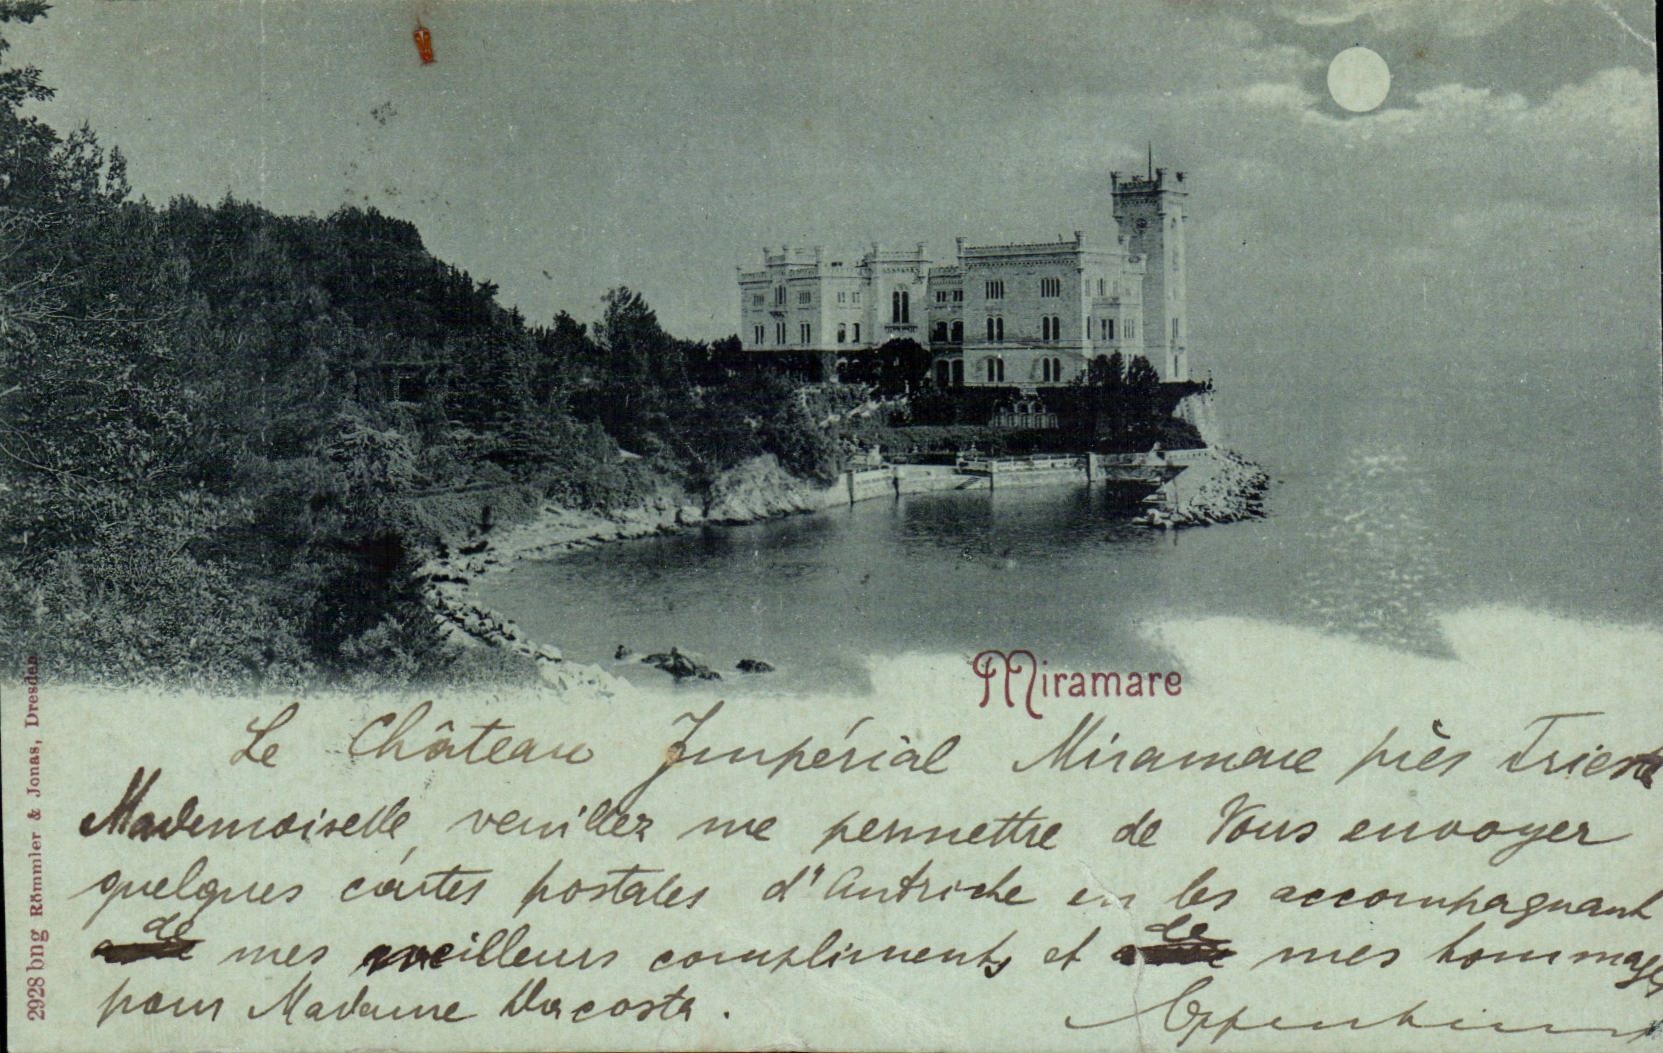 Miramare
Le Château Impérial Miramare près Trieste
Mademoiselle, veuillez me permettre de Vous envoyer
quelques cartes postales d'Autriche en les accompagnant
de mes meilleurs compliments et de mes hommages
pour Madame Dacosta.
Oppenheim
2928 bng Römmler & Jonas, Dresden